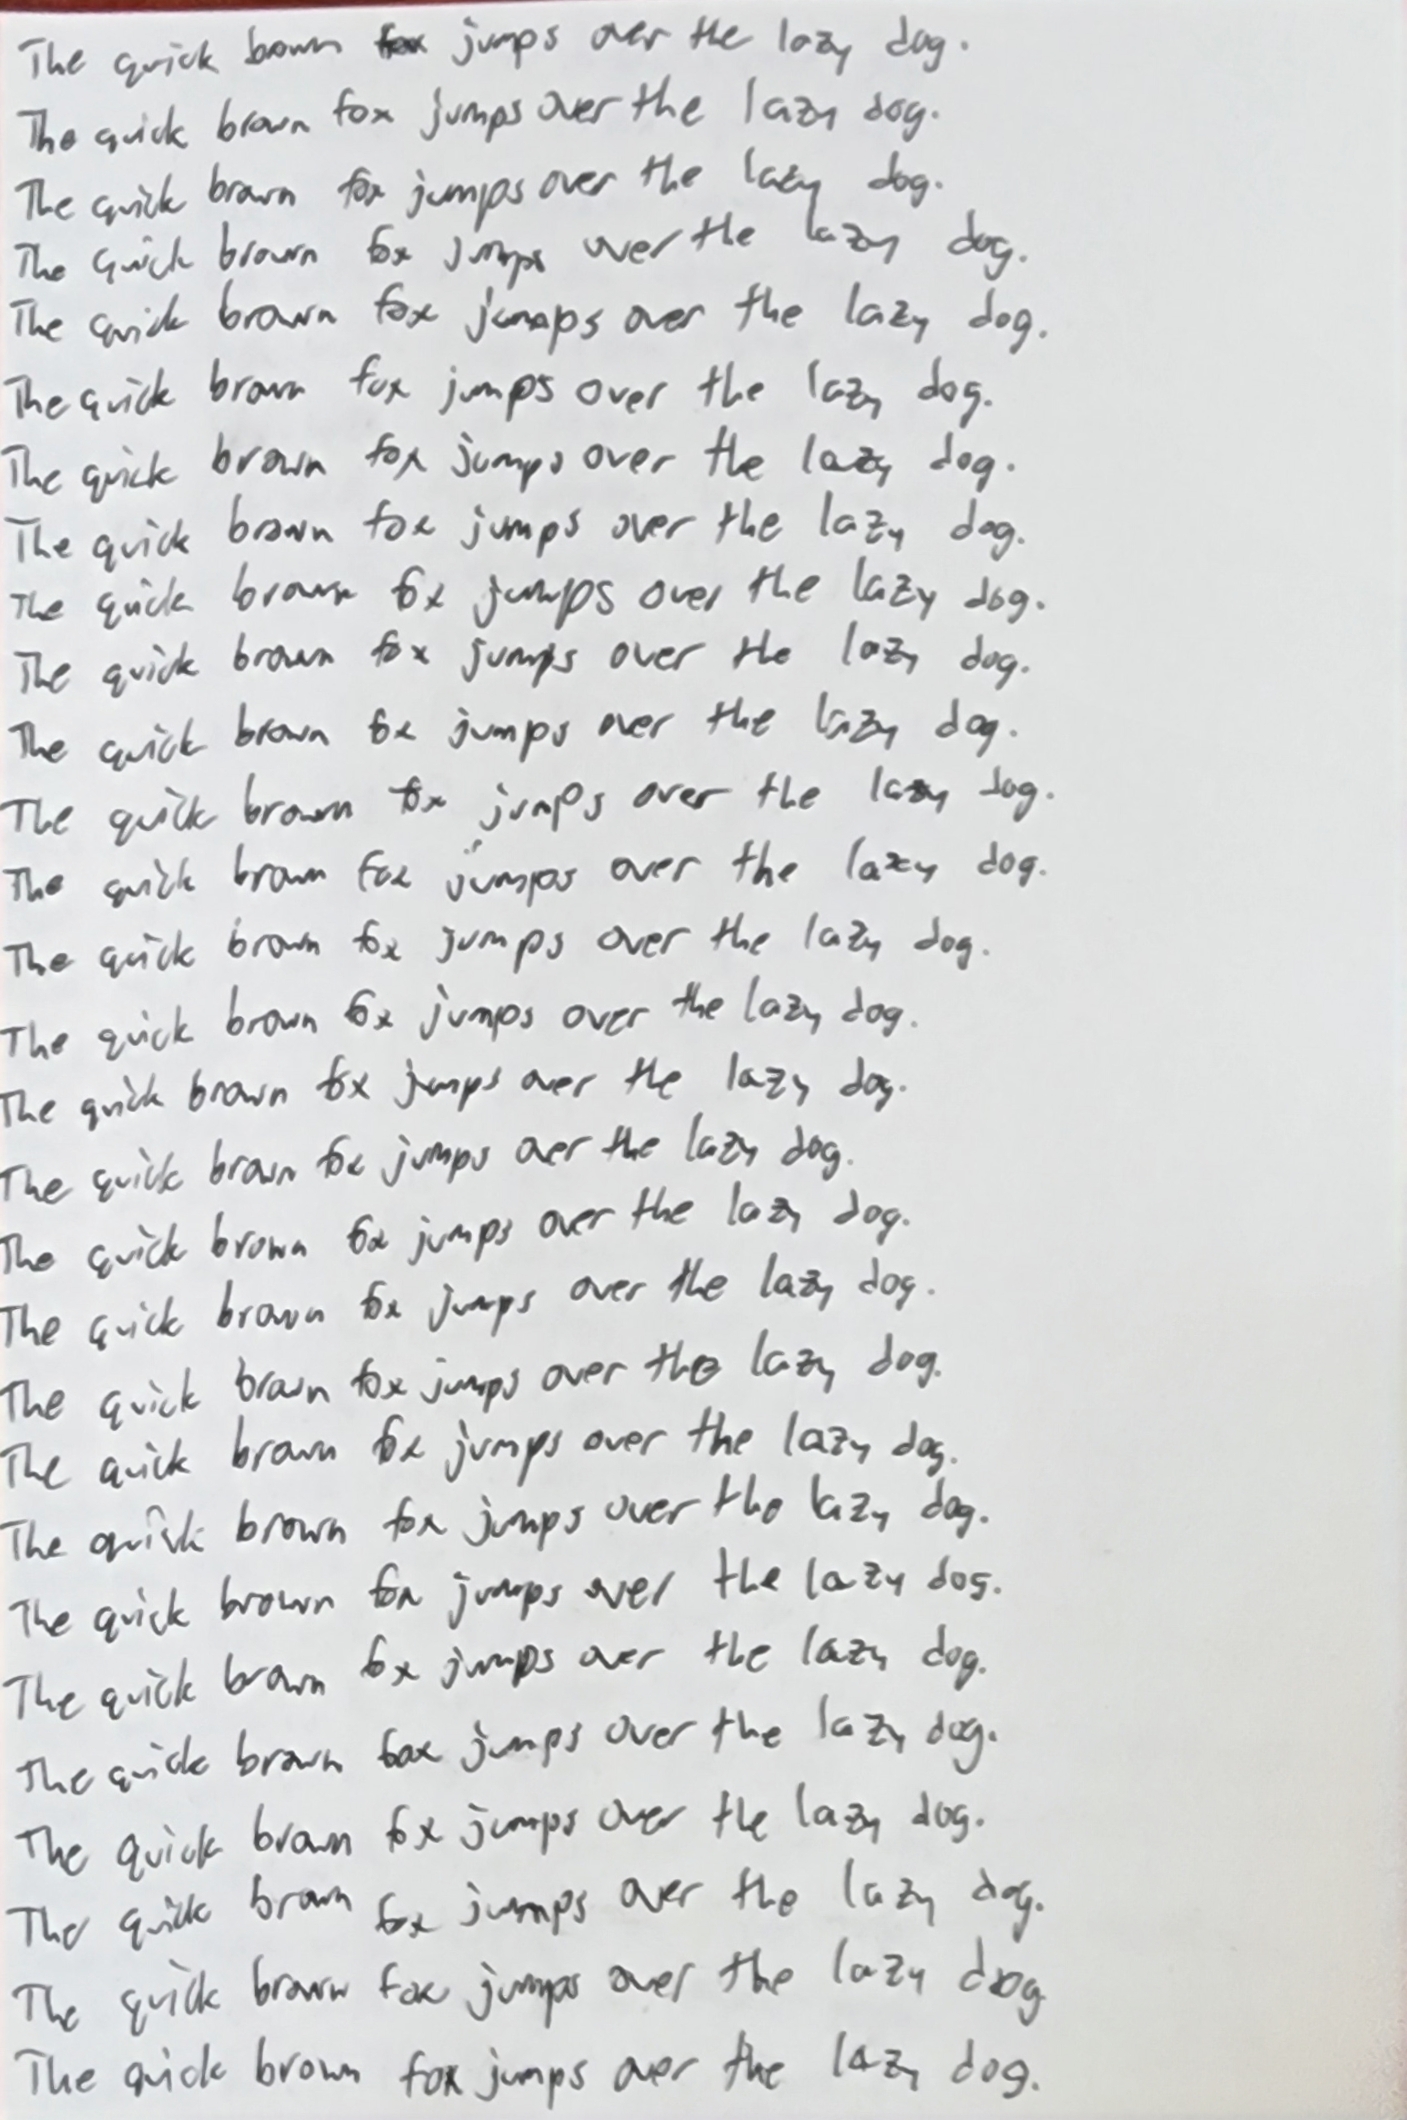 The quick brown fox jumps over the lazy dog.
The quick brown fox jumps over the lazy dog.
The quick brown fox jumps over the lazy dog.
The quick brown fox jumps over the lazy dog.
The quick brown fox jumps over the lazy dog.
The quick brown fox jumps over the lazy dog.
The quick brown fox jumps over the lazy dog.
The quick brown fox jumps over the lazy dog.
The quick brown fox jumps over the lazy dog.
The quick brown fox jumps over the lazy dog.
The quick brown fox jumps over the lazy dog.
The quick brown fox jumps over the lazy dog.
The quick brown fox jumps over the lazy dog.
The quick brown fox jumps over the lazy dog.
The quick brown fox jumps over the lazy dog.
The quick brown fox jumps over the lazy dog.
The quick brown fox jumps over the lazy dog.
The quick brown fox jumps over the lazy dog.
The quick brown fox jumps over the lazy dog.
The quick brown fox jumps over the lazy dog.
The quick brown fox jumps over the lazy dog.
The quick brown fox jumps over the lazy dog.
The quick brown fox jumps over the lazy dog.
The quick brown fox jumps over the lazy dog.
The quick brown fox jumps over the lazy dog.
The quick brown fox jumps over the lazy dog.
The quick brown fox jumps over the lazy dog.
The quick brown fox jumps over the lazy dog
The quick brown fox jumps over the lazy dog.